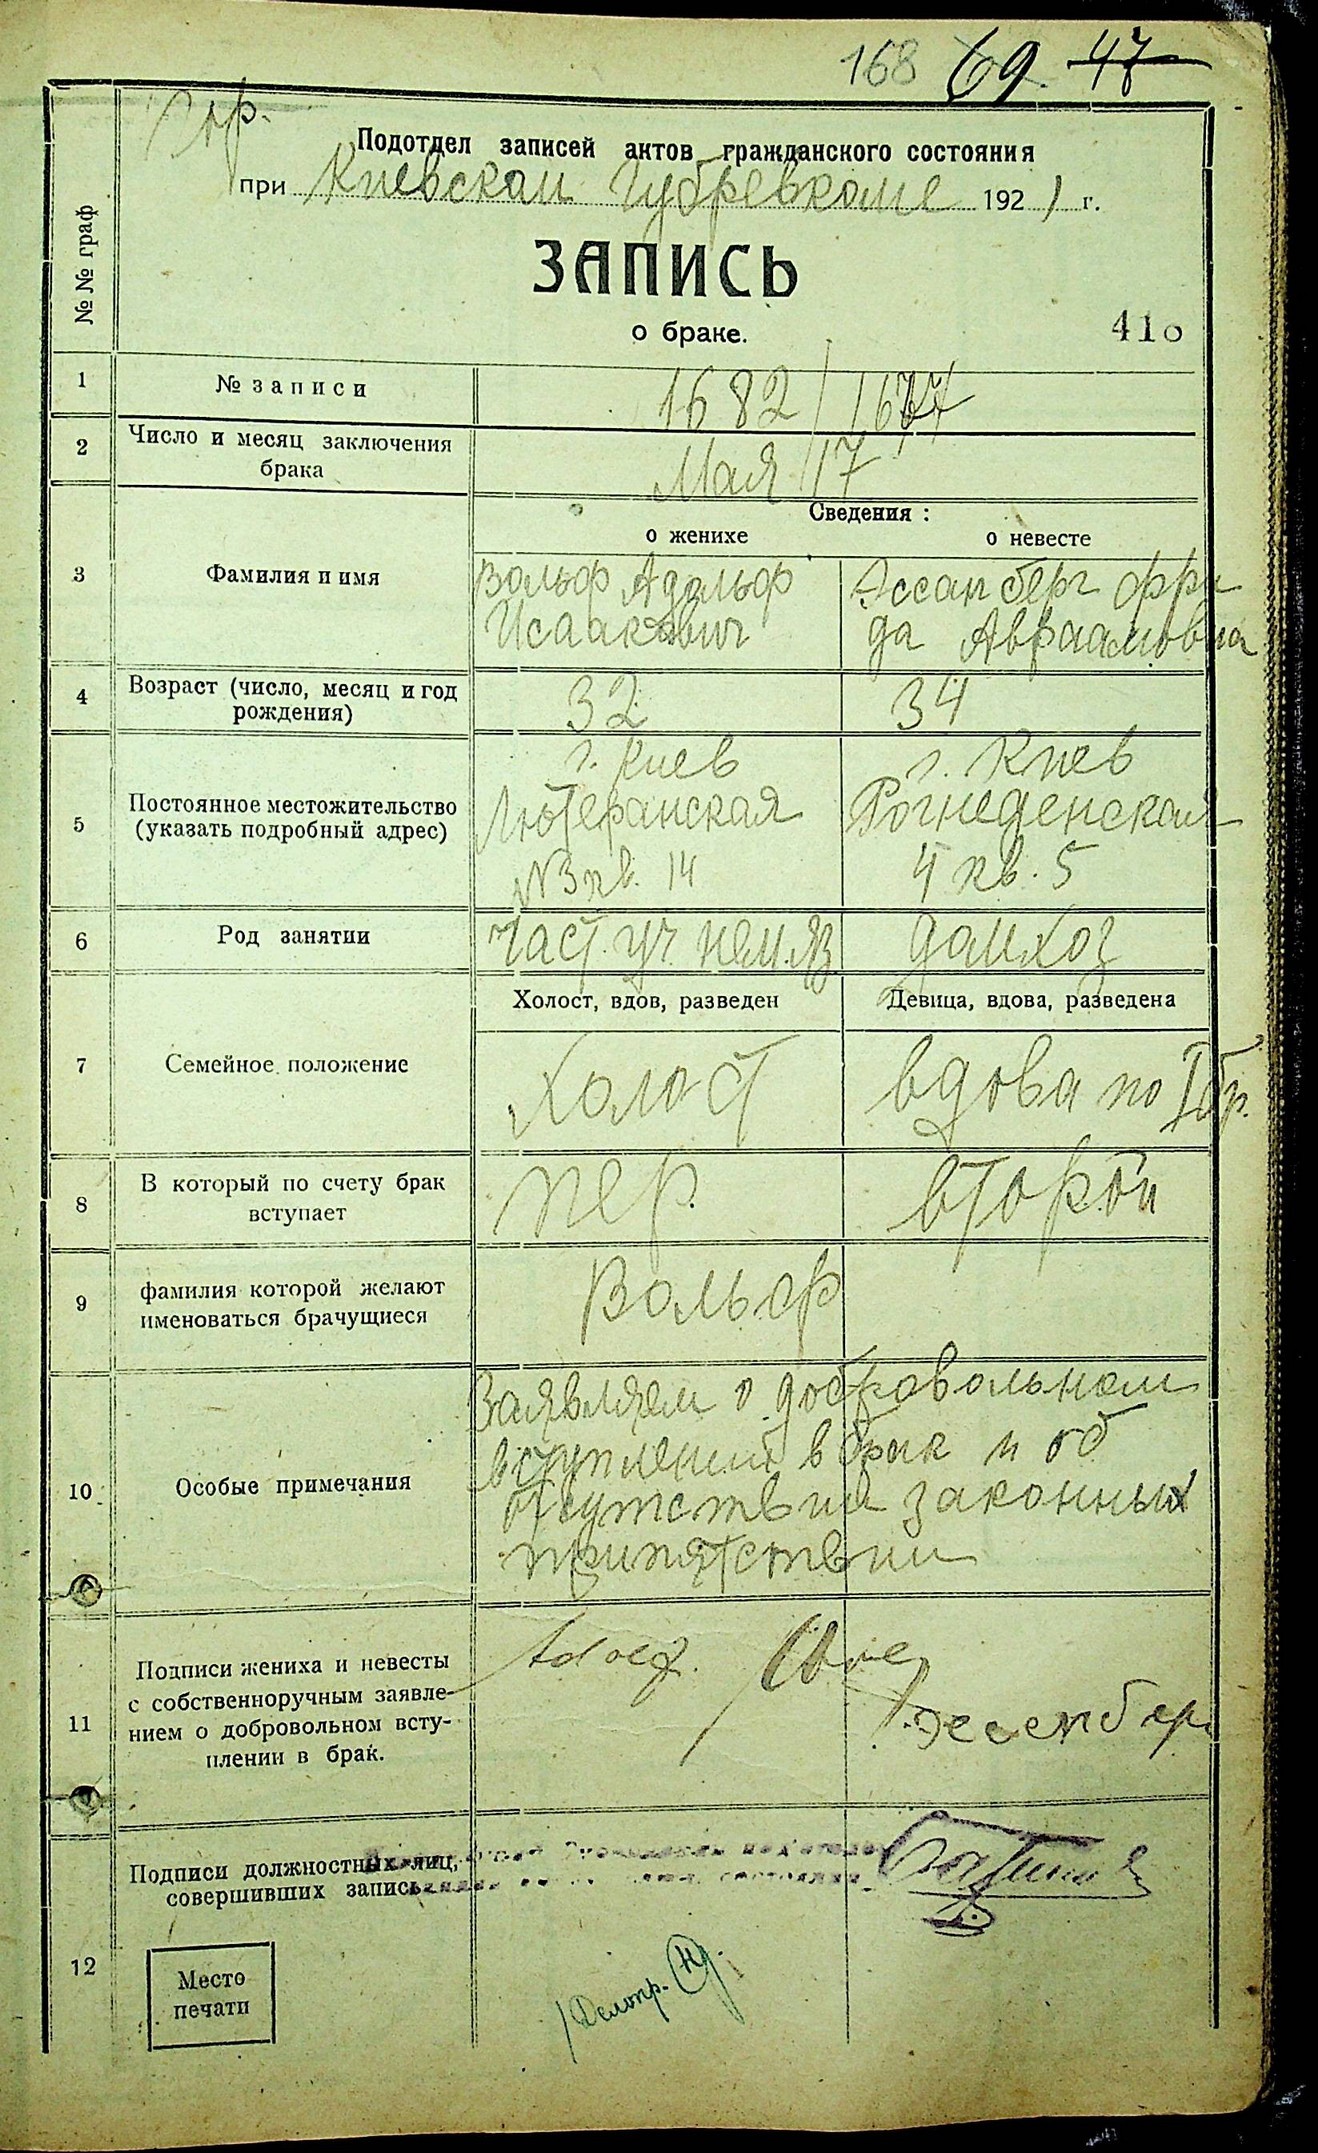 168 69 47
Гор.
Подотдел записей актов гражданского состояния
при Киевском Губревкоме 1921 г.
ЗАПИСЬ
о браке.
418
№ № граф
1 № записи 1682 / 1677
2 Число и месяц заключения
брака Мая 17
Сведения:
о женихе о невесте
3 Фамилия и имя
Вольф Адольф
Исаакович
Эссанберг Фри
да Авраамовна
4 Возраст (число, месяц и год
рождения) 32 34
5 Постоянное местожительство
(указать подробный адрес)
г. Киев
Лютеранская
№ 3 кв. 14
г. Киев
Рогнеденская
4 кв. 5
6 Род занятии Част. уч. нем. яз. домхоз
Холост, вдов, разведен Девица, вдова, разведена
7 Семейное положение Холост вдова по I бр.
8 В который по счету брак
вступает пер. второй
9 фамилия которой желают
именоваться брачущиеся Вольф
10 Особые примечания
Заявляем о добровольном
вступлении в брак и об
отсутствии законных
припятствии
11 Подписи жениха и невесты
с собственноручным заявле-
нием о добровольном всту-
плении в брак.
12 Подписи должностных лиц,
совершивших запись
Делопр.
Место
печати